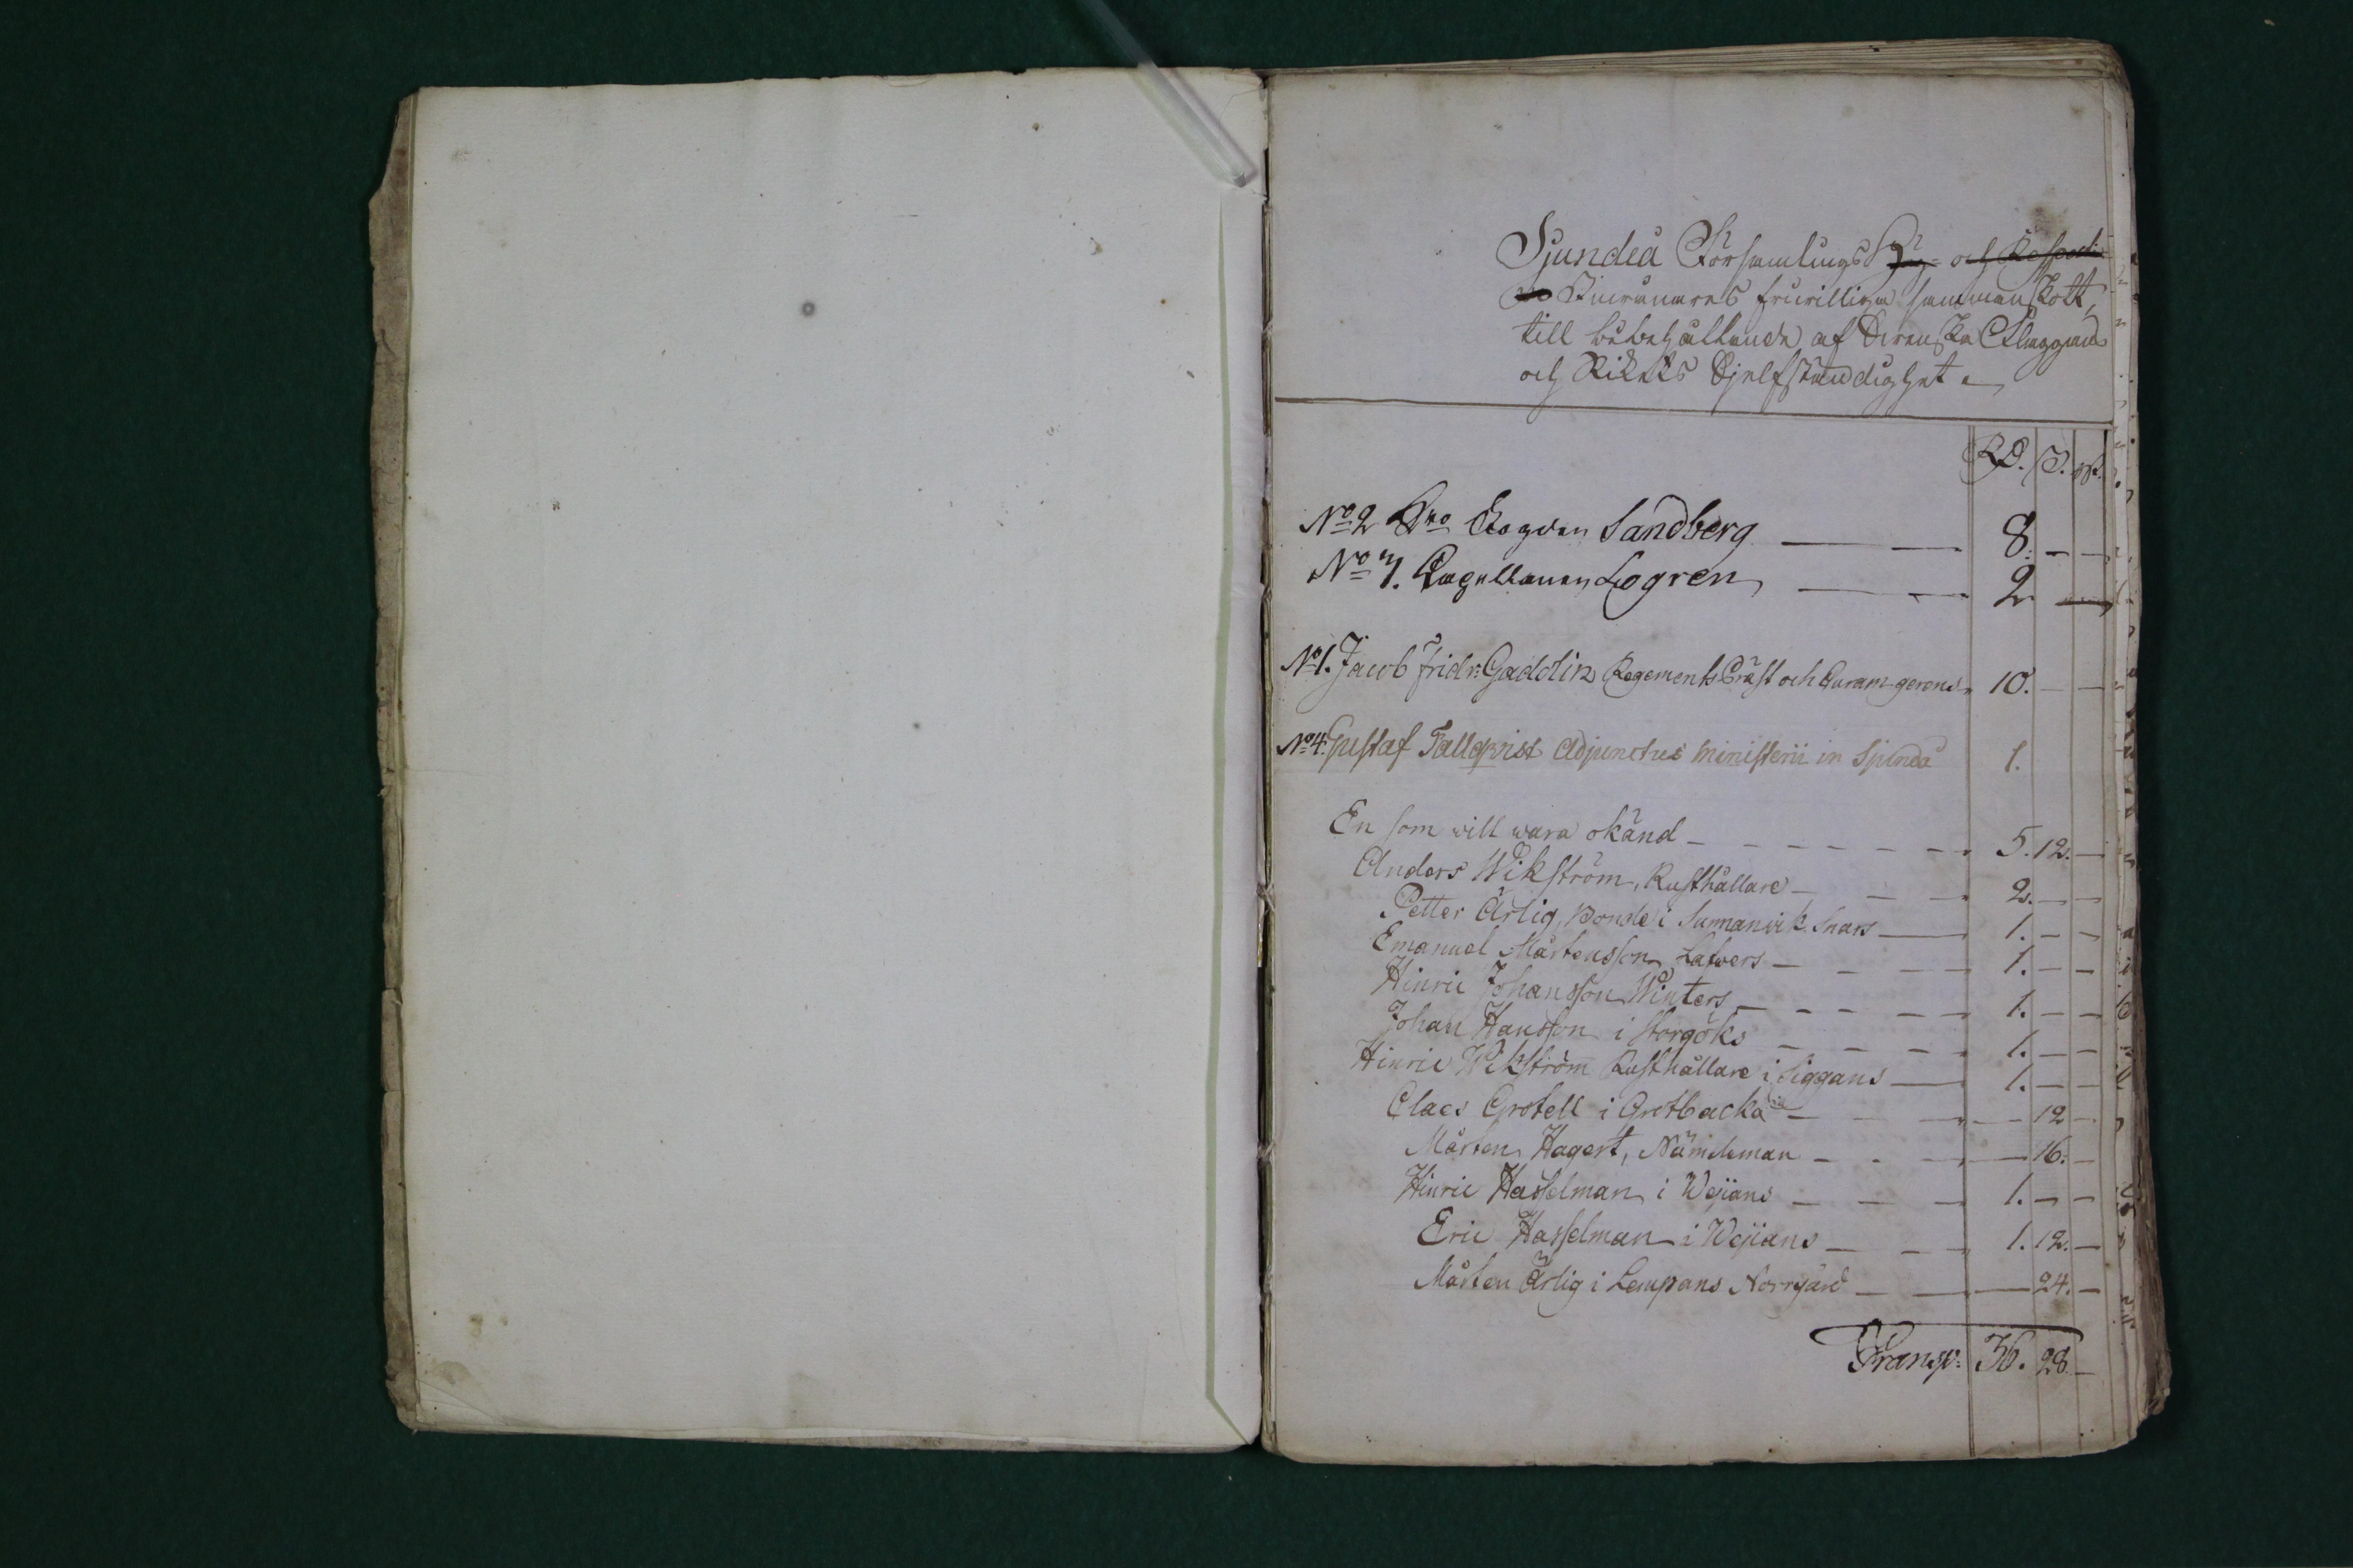 Sjundeå Församlings Hög- och Respecti-
ve Inwånares friwilliga sammanskott,
till bibehållande af Swenska Flaggans
och Rikets Sjelfständighet.
RD. S. rst.
No 2 Dno Cogden Sandberg — — 8. — —
No 7. Capellanen Logren — — 2 —
No 1. Jacob Fridr: Gadolin Regements Präst och Curam gerens 10. — —
No 4. Gustaf Fallqvist Adjunctus Ministerii in Sjundå 1.
En som will wara okänd — 5. 12. —
Anders Wikström, Rusthållare — 2. — —
Petter Ärlig, Bonde i Sunnanvik Snars — 1. — —
Emanuel Mårtensson Lafvers — 1. — —
Hinric Johansson Winters — 1. — —
Johan Hansson i Storgöks — 1. — —
Hinric Wikström Rusthållare i Siggans — 1. — —
Claes Grotell i Grotbacka — — 12 —
Mårten Hagert, Nämdeman — — 16. —
Hinric Hasselman i Wejans — 1. — —
Eric Hasselman i Wejans — 1. 12. —
Mårten Ärlig i Lempans Norrgård — — 24. —
Transp: 36. 28. —